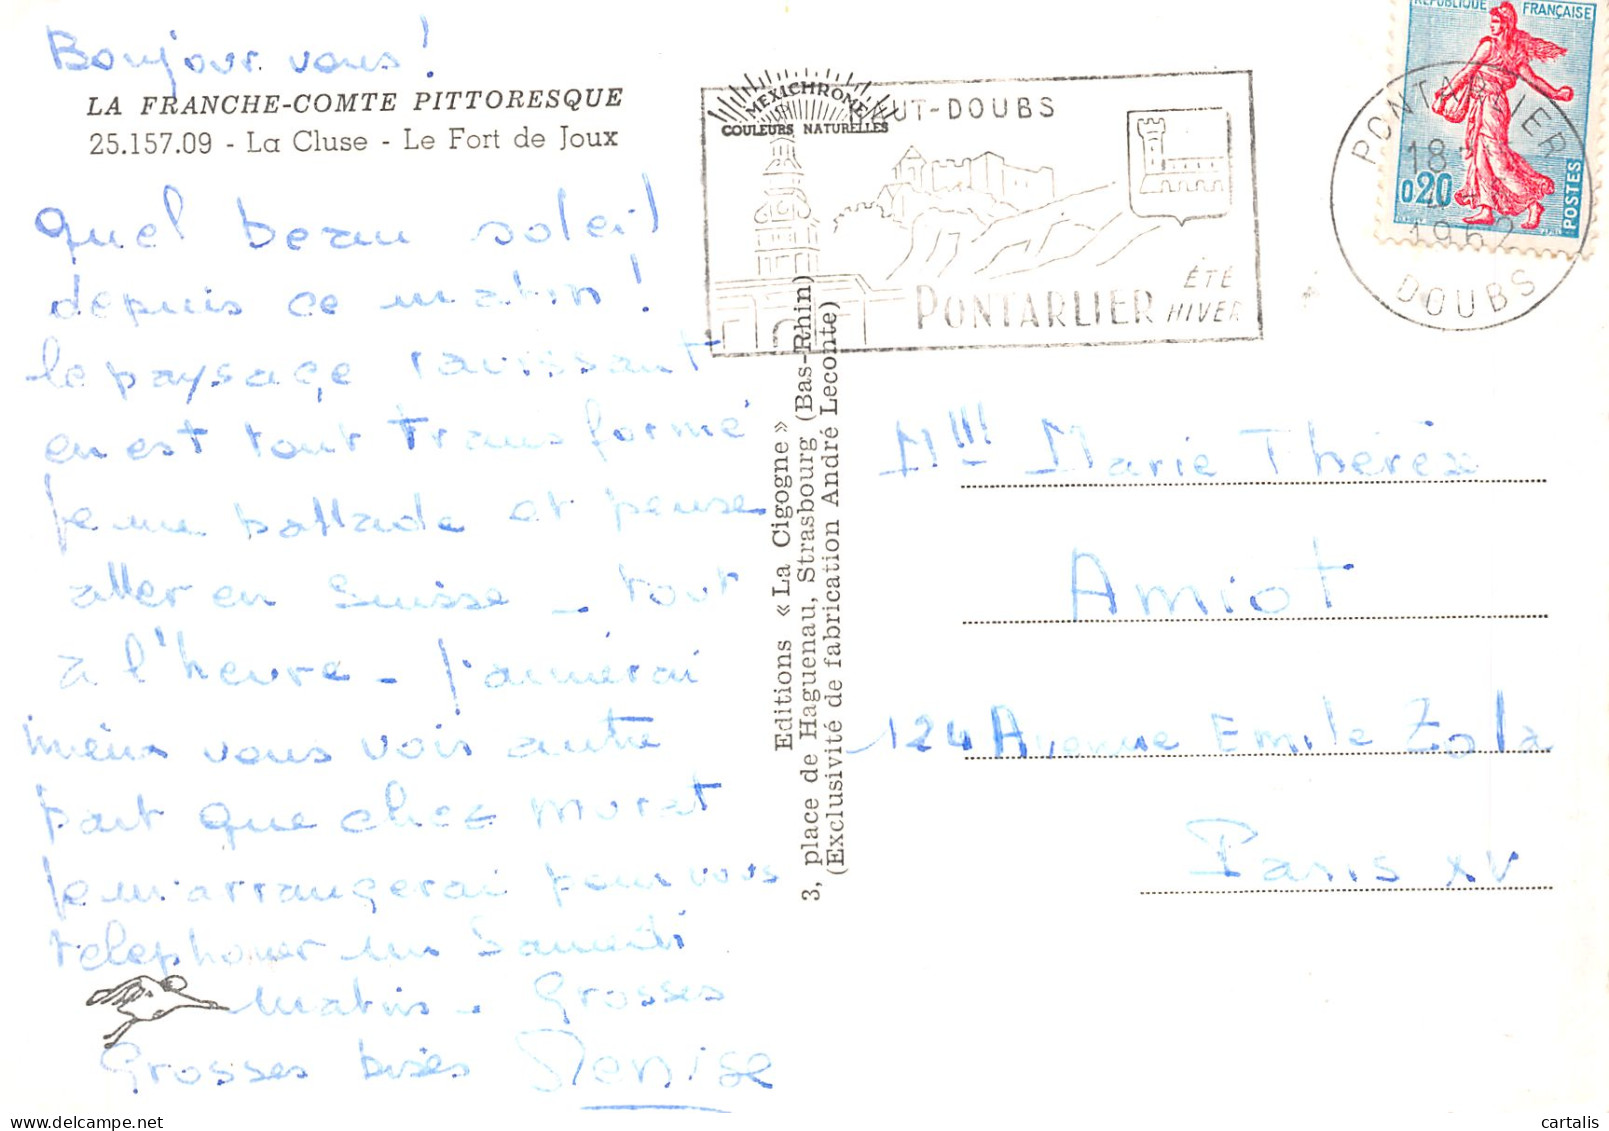 Bonjour vous!
LA FRANCHE-COMTE PITTORESQUE
25.157.09 - La Cluse - Le Fort de Joux
Quel beau soleil
depuis ce matin!
le paysage ravissant
en est tout transformé
je me ballade et pense
aller en Suisse - tout
à l'heure - j'aimerai
mieux vous voir autre
part que chez Murat
je m'arrangerai pour vous
telephoner un Samedi
Matin - Grosses
Grosses bises Denise
MEXICHROME
COULEURS NATURELLES
HAUT-DOUBS
PONTARLIER
ÉTÉ
HIVER
Editions « La Cigogne »
3, place de Haguenau, Strasbourg (Bas-Rhin)
(Exclusivité de fabrication André Leconte)
REPUBLIQUE FRANÇAISE
0,20
POSTES
PONTARLIER
18
1962
DOUBS
Mlle Marie Thérèse
Amiot
124 Avenue Emile Zola
Paris XV
cartalis